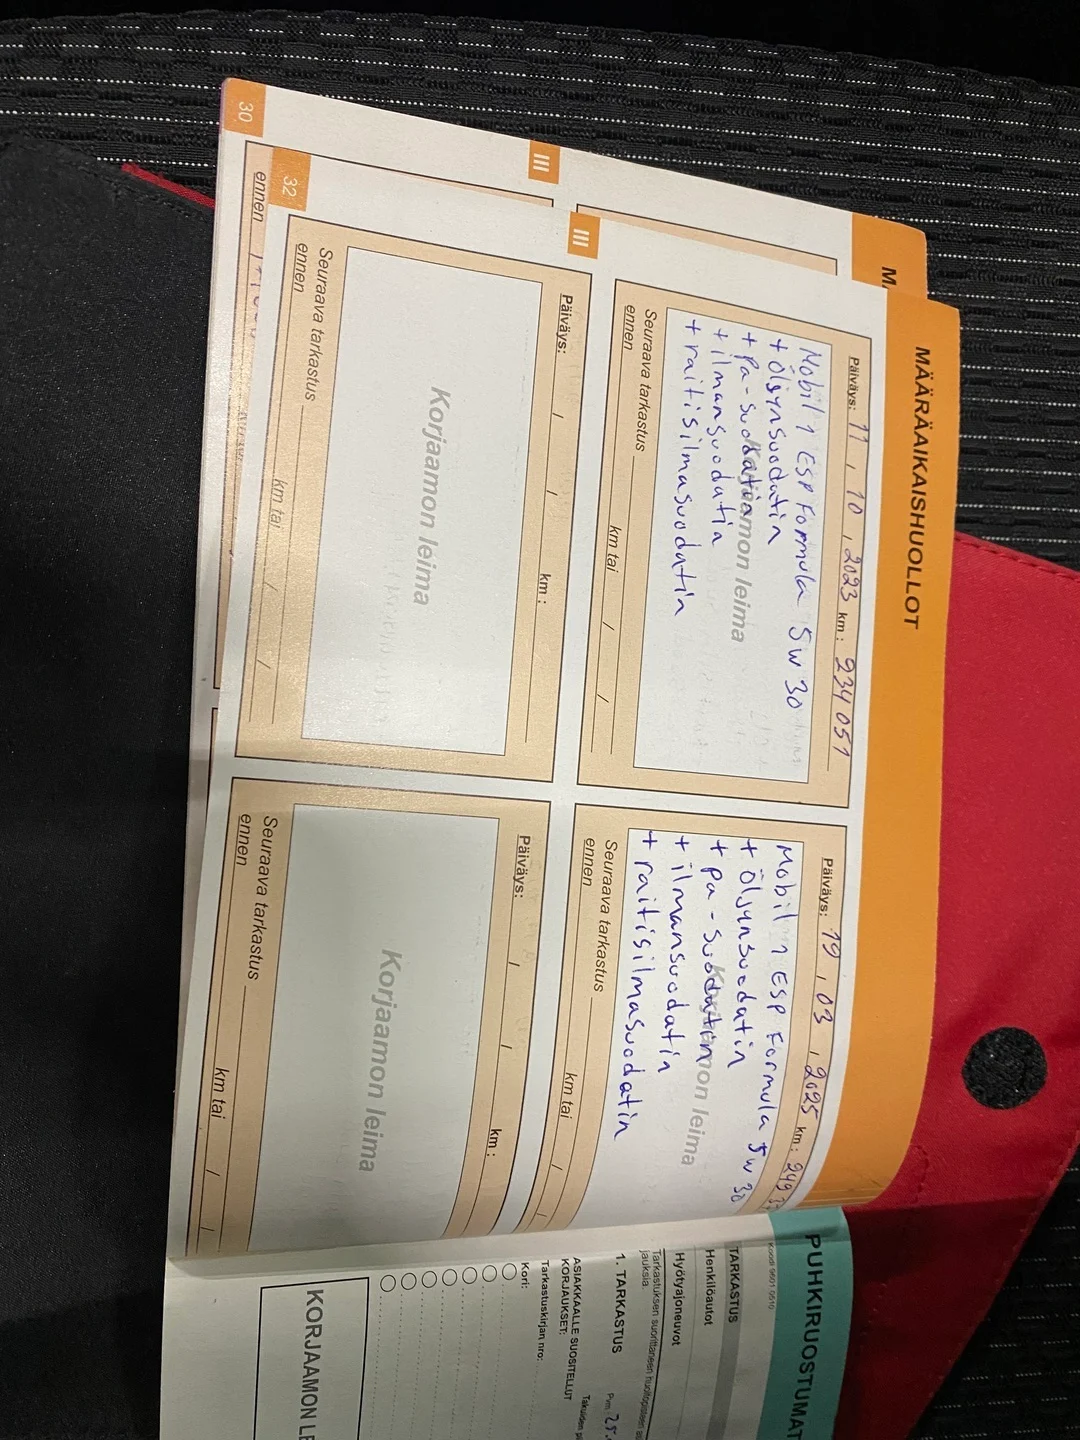 MÄÄRÄAIKAISHUOLLOT
Päiväys: 11 / 10 / 2023 km: 234 051
Mobil 1 ESP Formula 5W30
+ öljynsuodatin
+ pa-suodatin
+ ilmansuodatin
+ raitisilmasuodatin
Korjaamon leima
Seuraava tarkastus
ennen km tai / /
Päiväys: 19 / 03 / 2025 km: 249
Mobil 1 ESP Formula 5W30
+ öljynsuodatin
+ pa-suodatin
+ ilmansuodatin
+ raitisilmasuodatin
Korjaamon leima
Seuraava tarkastus
ennen km tai / /
III
Päiväys: / / km:
Korjaamon leima
Seuraava tarkastus
ennen km tai / /
Päiväys: / / km:
Korjaamon leima
Seuraava tarkastus
ennen km tai / /
32
III
ennen
30
PUHKIRUOSTUMAT
TARKASTUS
Henkilöautot
Hyötyajoneuvot
Tarkastuksen suorittaneen
jauksia.
1. TARKASTUS
Pvm: 25.
ASIAKKAALLE SUOSITELLUT
KORJAUKSET:
Tarkastuskirjan nro:
Kori:
KORJAAMON LE